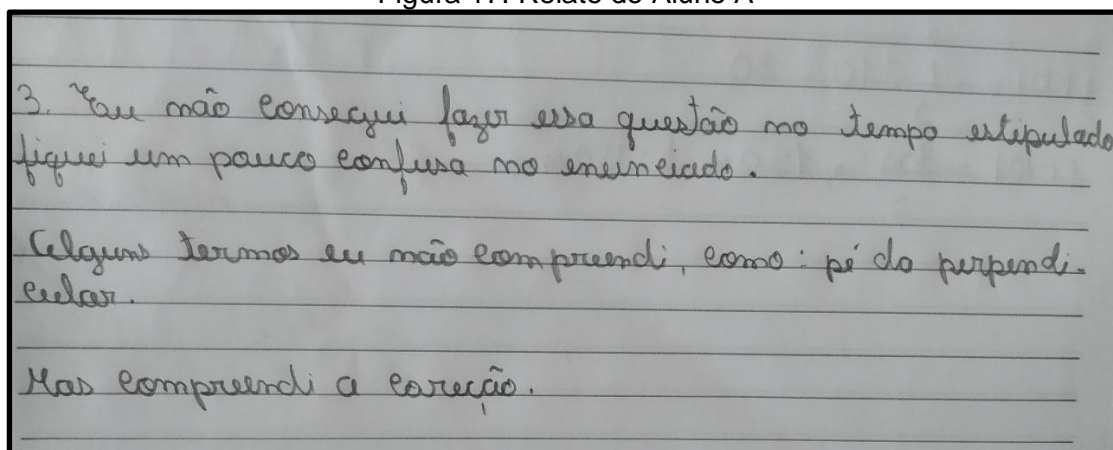 3. Eu não consegui fazer essa questão no tempo estipulado
fiquei um pouco confusa no enunciado.
Alguns termos eu não compreendi, como: pé da perpendi-
cular.
Mas compreendi a correção.